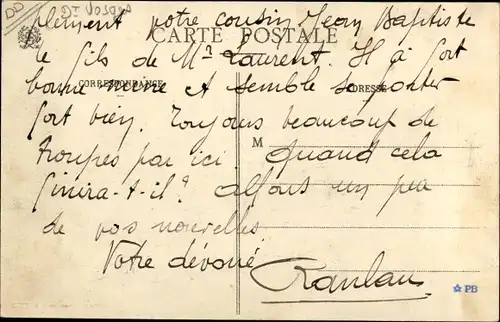 DD
Dt VOSGES
plement votre cousin Jean Baptiste
CARTE POSTALE
le fils de Mr Laurent. Il à fort
CORRESPONDANCE
ADRESSE
bonne mine et semble se porter
fort bien. Toujours beaucoup de
troupes par ici
M
Quand cela
finira-t-il? allons un peu
de vos nouvelles
Votre dévoué
PB